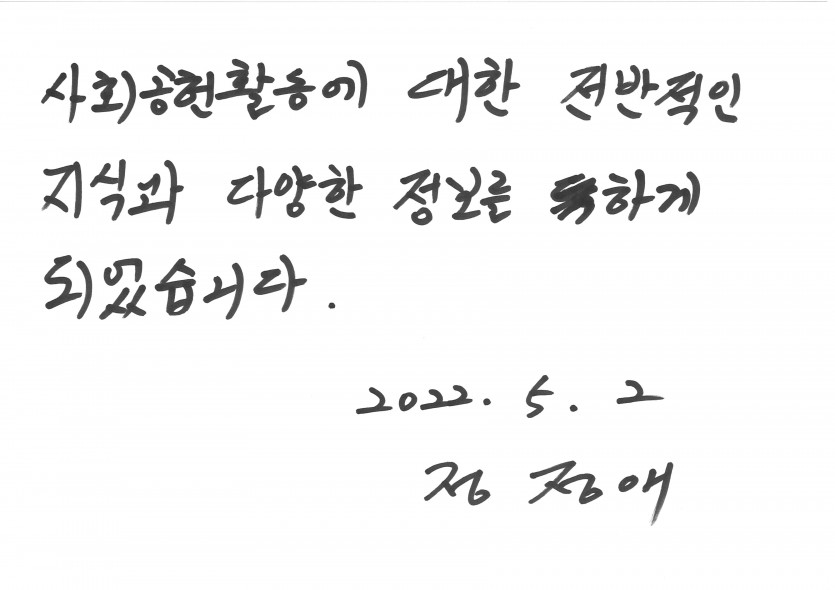 사회공헌활동에 대한 전반적인
지식과 다양한 정보를
되었습니다.
2022. 5. 2
정 정애